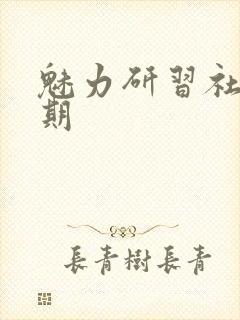 魅力研習社
期
長青樹長青